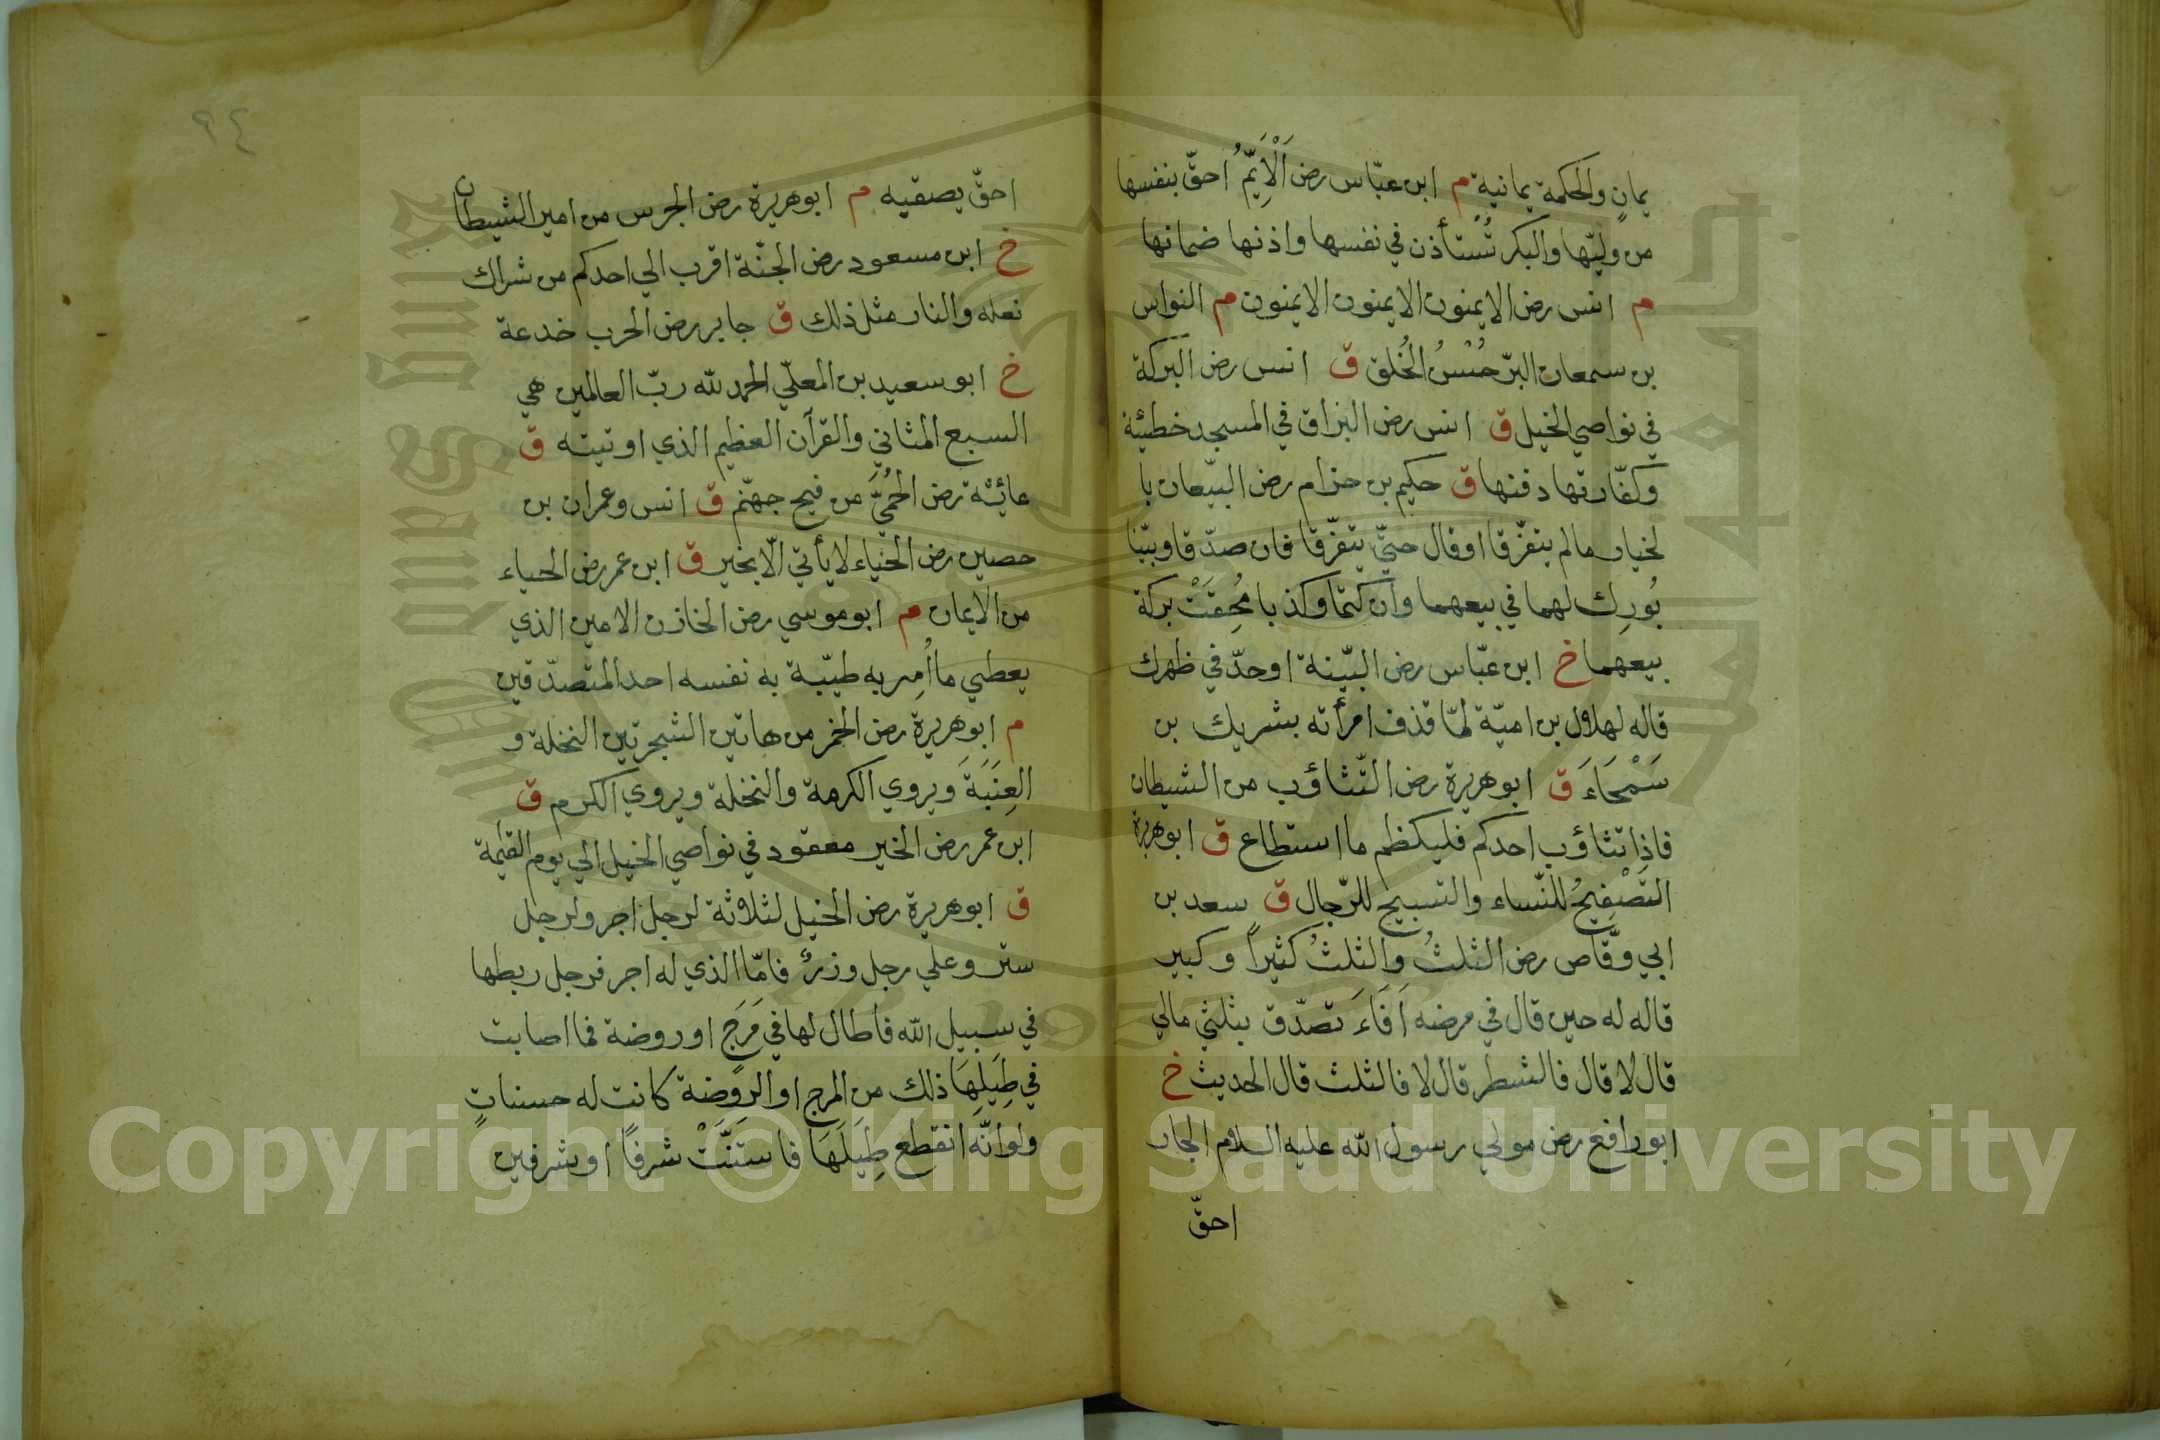 يمانٍ والحكمة يمانية م ابن عبّاس رض اَلْاَيِّمُ احقّ بنفسها
من وليّها والبكر تُسْتأذن في نفسها واذنها ضمانها
م انس رض الايمنون الايمنون الايمنون م النواس
بن سمعان البرّ حُسْنُ الخُلق ق انس رض البركة
في نواصي الخيل ق انس رض البزاق في المسجد خطيئة
وكفّارتها دفنها ق حكيم بن حزام رض البيّعان با
لخيار مالم يتفرّقا او قال حتيّ يتفرّقا فان صدّقا وبيّنا
بُورِك لهما في بيعهما وان كتما وكذبا مُحِقَتْ بركة
بيعهما خ ابن عبّاس رض البيّنة او حدّ في ظهرك
قاله لهلال بن اميّة لمّا قذف امرأته بشريك بن
سَمْحَاءَ ق ابو هريرة رض التّثاؤب من الشيطان
فاذا تثاؤب احدكم فليكظم ما استطاع ق ابو هريرة
التَّصْفِيحُ للنّساء والتسبيح للرّجال ق سعد بن
ابي وقّاص رض الثلثُ والثلثُ كثيراً وكبير
قاله له حين قال في مرضه اَفَاَتَصدّق بثلثي مالي
قال لا قال فالشطر قال لا فالثلث قال الحديث خ
ابو رافع رض مولي رسول الله عليه السلام الجار
احقّ
٩٤
احقّ بصقيه م ابو هريرة رض الجرس من امير الشيطان
خ ابن مسعود رض الجنّة اقرب الي احدكم من شراك
نعله والنار مثل ذلك ق جابر رض الحرب خدعة
خ ابو سعيد بن المعلّي الحمد لله ربّ العالمين هي
السبع المثاني والقرآن العظيم الذي اوتيته ق
عائشة رض الحُمّيَ من فيح جهنّم ق انس وعمران بن
حصين رض الحياء لا يأتي الّا بخير ق ابن عمر رض الحياء
من الايمان م ابو موسي رض الخازن الامين الذي
يعطي ما اُمِر به طيّبة به نفسه احد المتصدّقين
م ابو هريرة رض الخمر من هاتين الشجرتين النخلة و
العِنَبَةَ ويروي الكرمة والنخلة ويروي الكرم ق
ابن عمر رض الخير معقود في نواصي الخيل الي يوم القيمة
ق ابو هريرة رض الخيل لثلاثة لرجل اجر ولرجل
ستر وعلي رجل وزرٌ فامّا الذي له اجر فرجل ربطها
في سبيل الله فاطال لها في مَرَجٍ او روضة فما اصابت
في طِيَلِهَا ذلك من المرج او الروضة كانت له حسناتٍ
ولو انّه انقطع طِيَلَهَا فاستَنَّتْ شرفاً او شرفين
Copyright © King Saud University
King Saud University
1957